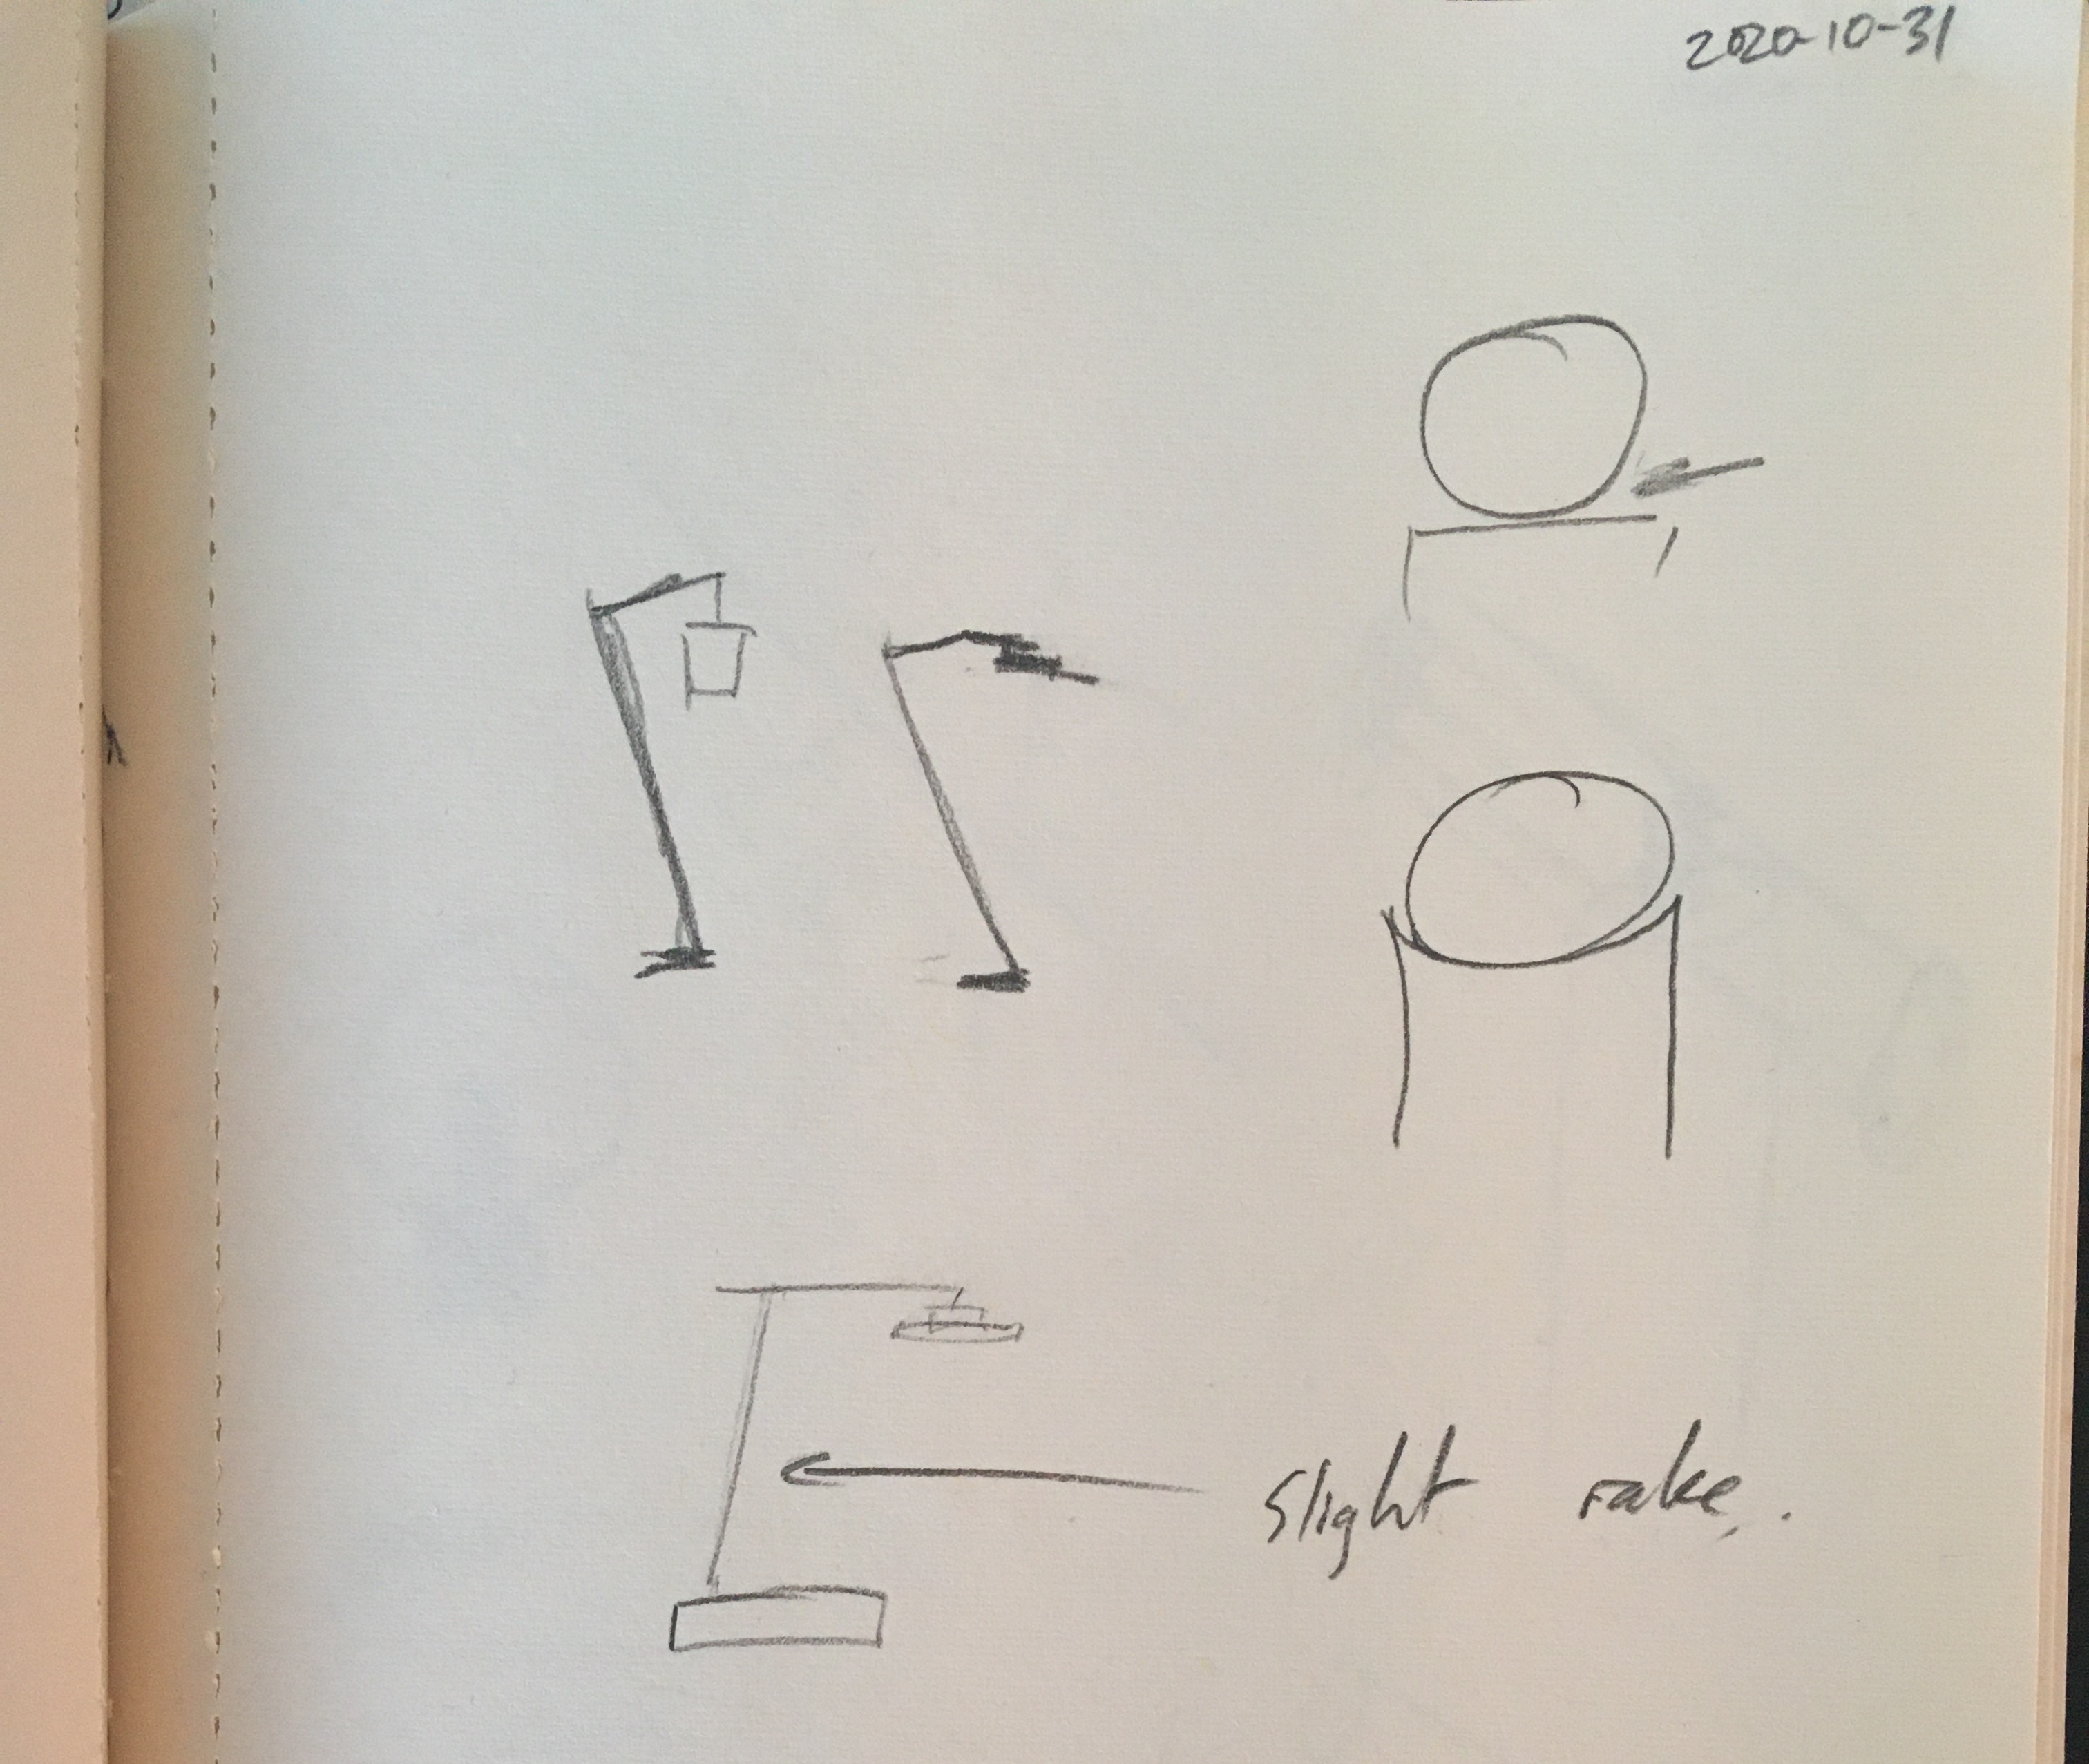 2020-10-31
slight rake.